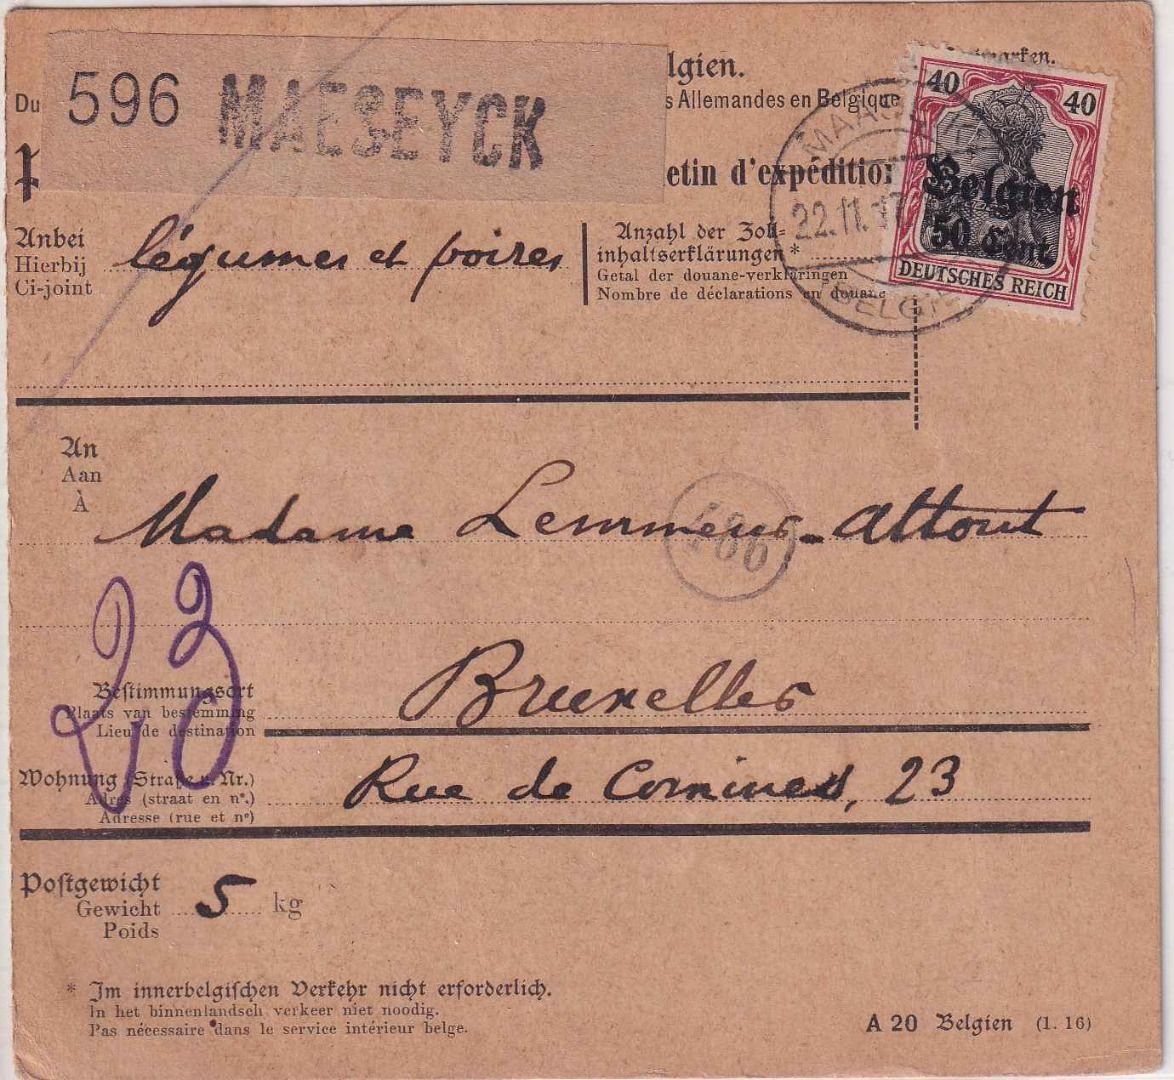 596 MAESEYCK
Du
lgien.
s Allemandes en Belgique
etin d'expédition
40 40
Belgien
50 Cent.
DEUTSCHES REICH
22.11.17
Anbei
Hierbij
Ci-joint
légumes et poires
Anzahl der Zoll=
inhaltserklärungen *
Getal der douane-verklaringen
Nombre de déclarations en douane
An
Aan
À
Madame Lemmens-Attout
486
23
Bestimmungsort
Plaats van bestemming
Lieu de destination
Bruxelles
Wohnung (Straße u. Nr.)
Adres (straat en n°.)
Adresse (rue et n°)
Rue de Comines, 23
Postgewicht
Gewicht
Poids
5 kg
* Im innerbelgischen Verkehr nicht erforderlich.
In het binnenlandsch verkeer niet noodig.
Pas nécessaire dans le service intérieur belge.
A 20 Belgien (1. 16)